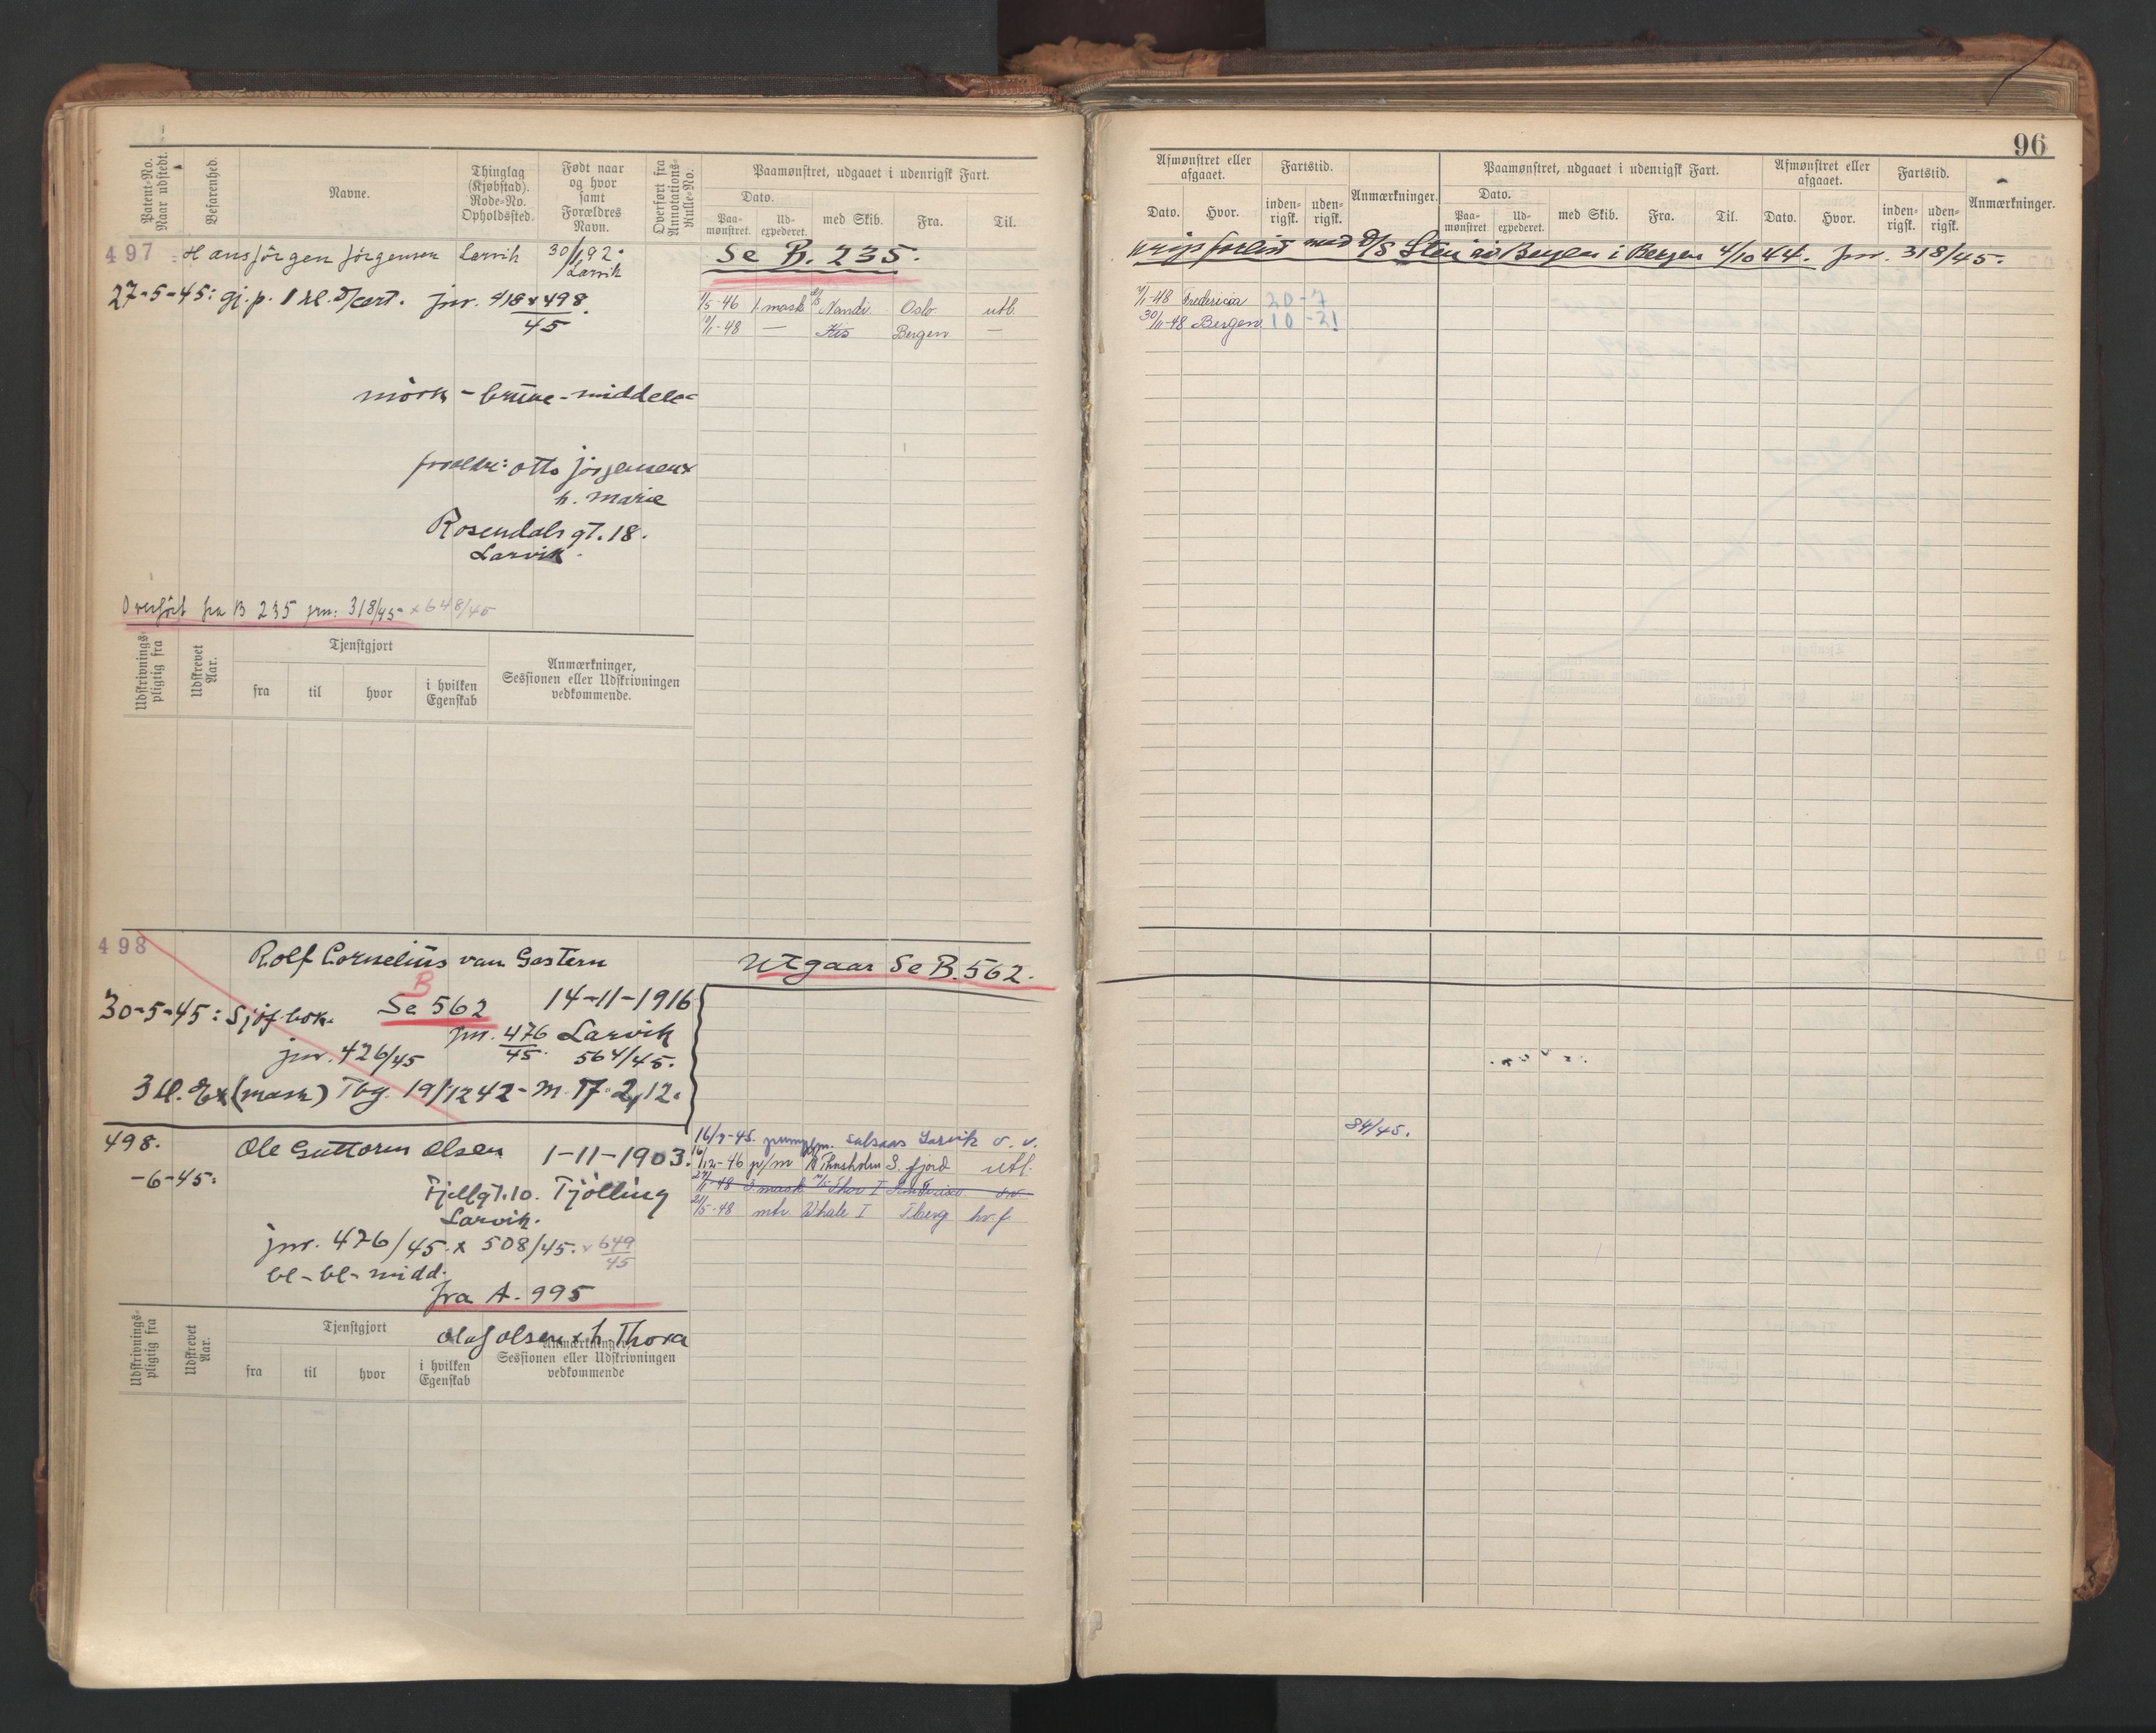 96
Patent-No. Naar udstedt.
Befarenhed.
Navne.
Thinglag (Kjøbstad). Rode-No. Opholdssted.
Født naar og hvor samt Forældres Navn.
Overført fra Annotations-Rulle-No.
Paamønstret, udgaaet i udenrigsk Fart.
Dato.
Paa-mønstret.
Ud-expederet.
med Skib.
Fra.
Til.
Afmønstret eller afgaaet.
Dato.
Hvor.
Fartstid.
inden-rigsk.
uden-rigsk.
Anmærkninger.
Paamønstret, udgaaet i udenrigsk Fart.
Dato.
Paa-mønstret
Ud-expederet.
med Skib.
Fra.
Til.
Afmønstret eller afgaaet.
Dato.
Hvor.
Fartstid.
inden-rigsk.
uden-rigsk.
Anmærkninger.
497 Hans Jörgen Jörgensen Larvik 30/1 92. Larvik
Se B. 235.
krigsforlist med D/S Stein i Bergen 4/10 44. jnr. 318/45.
27-5-45: gj.p. 1 kl. D/cert. jnr. 418 x 498/45
1/5-46 1. mask D/S Nandi Oslo utl.
7/1-48 Fredericia 20-7
10/1-48 — Kis Bergen —
30/11-48 Bergen 10-21
mörk - brune - middels
foreldre: Otto Jörgensen x
h. Marie
Rosendals gt. 18.
Larvik.
Overført fra B 235 jnr: 318/45 x 648/45
Udskrivnings-pligtig fra
Udskrevet Aar.
Tjenstgjort
fra
til
hvor
i hvilken Egenskab
Anmærkninger, Sessionen eller Udskrivningen vedkommende.
498 Rolf Cornelius van Gastern
Utgaar Se B. 562.
B
Se 562 14-11-1916
30-5-45: Sjöf. bok.
jnr. 476/45 Larvik
jnr. 426/45 564/45.
3 kl. Ex (mask) Tbg. 19/12 42 - M. 17. 2,12.
498. Ole Guttorm Olsen 1-11-1903.
-6-45:
Fjellgt. 10. Tjölling
Larvik.
jnr. 476/45 x 508/45. x 649/45
bl - bl - midd.
fra A. 995
Olaf Olsen x h. Thora
16/7-45. pumpem. Solsaas Larvik v. v.
84/45.
16/12-46 p/m Thorsholm S. fjord utl.
27/1-48 mask M/S Thor I
21/5-48 mtr Whale I Tberg hv. f.
Udskrivnings-pligtig fra
Udskrevet Aar.
Tjenstgjort
fra
til
hvor
i hvilken Egenskab
Anmærkninger, Sessionen eller Udskrivningen vedkommende